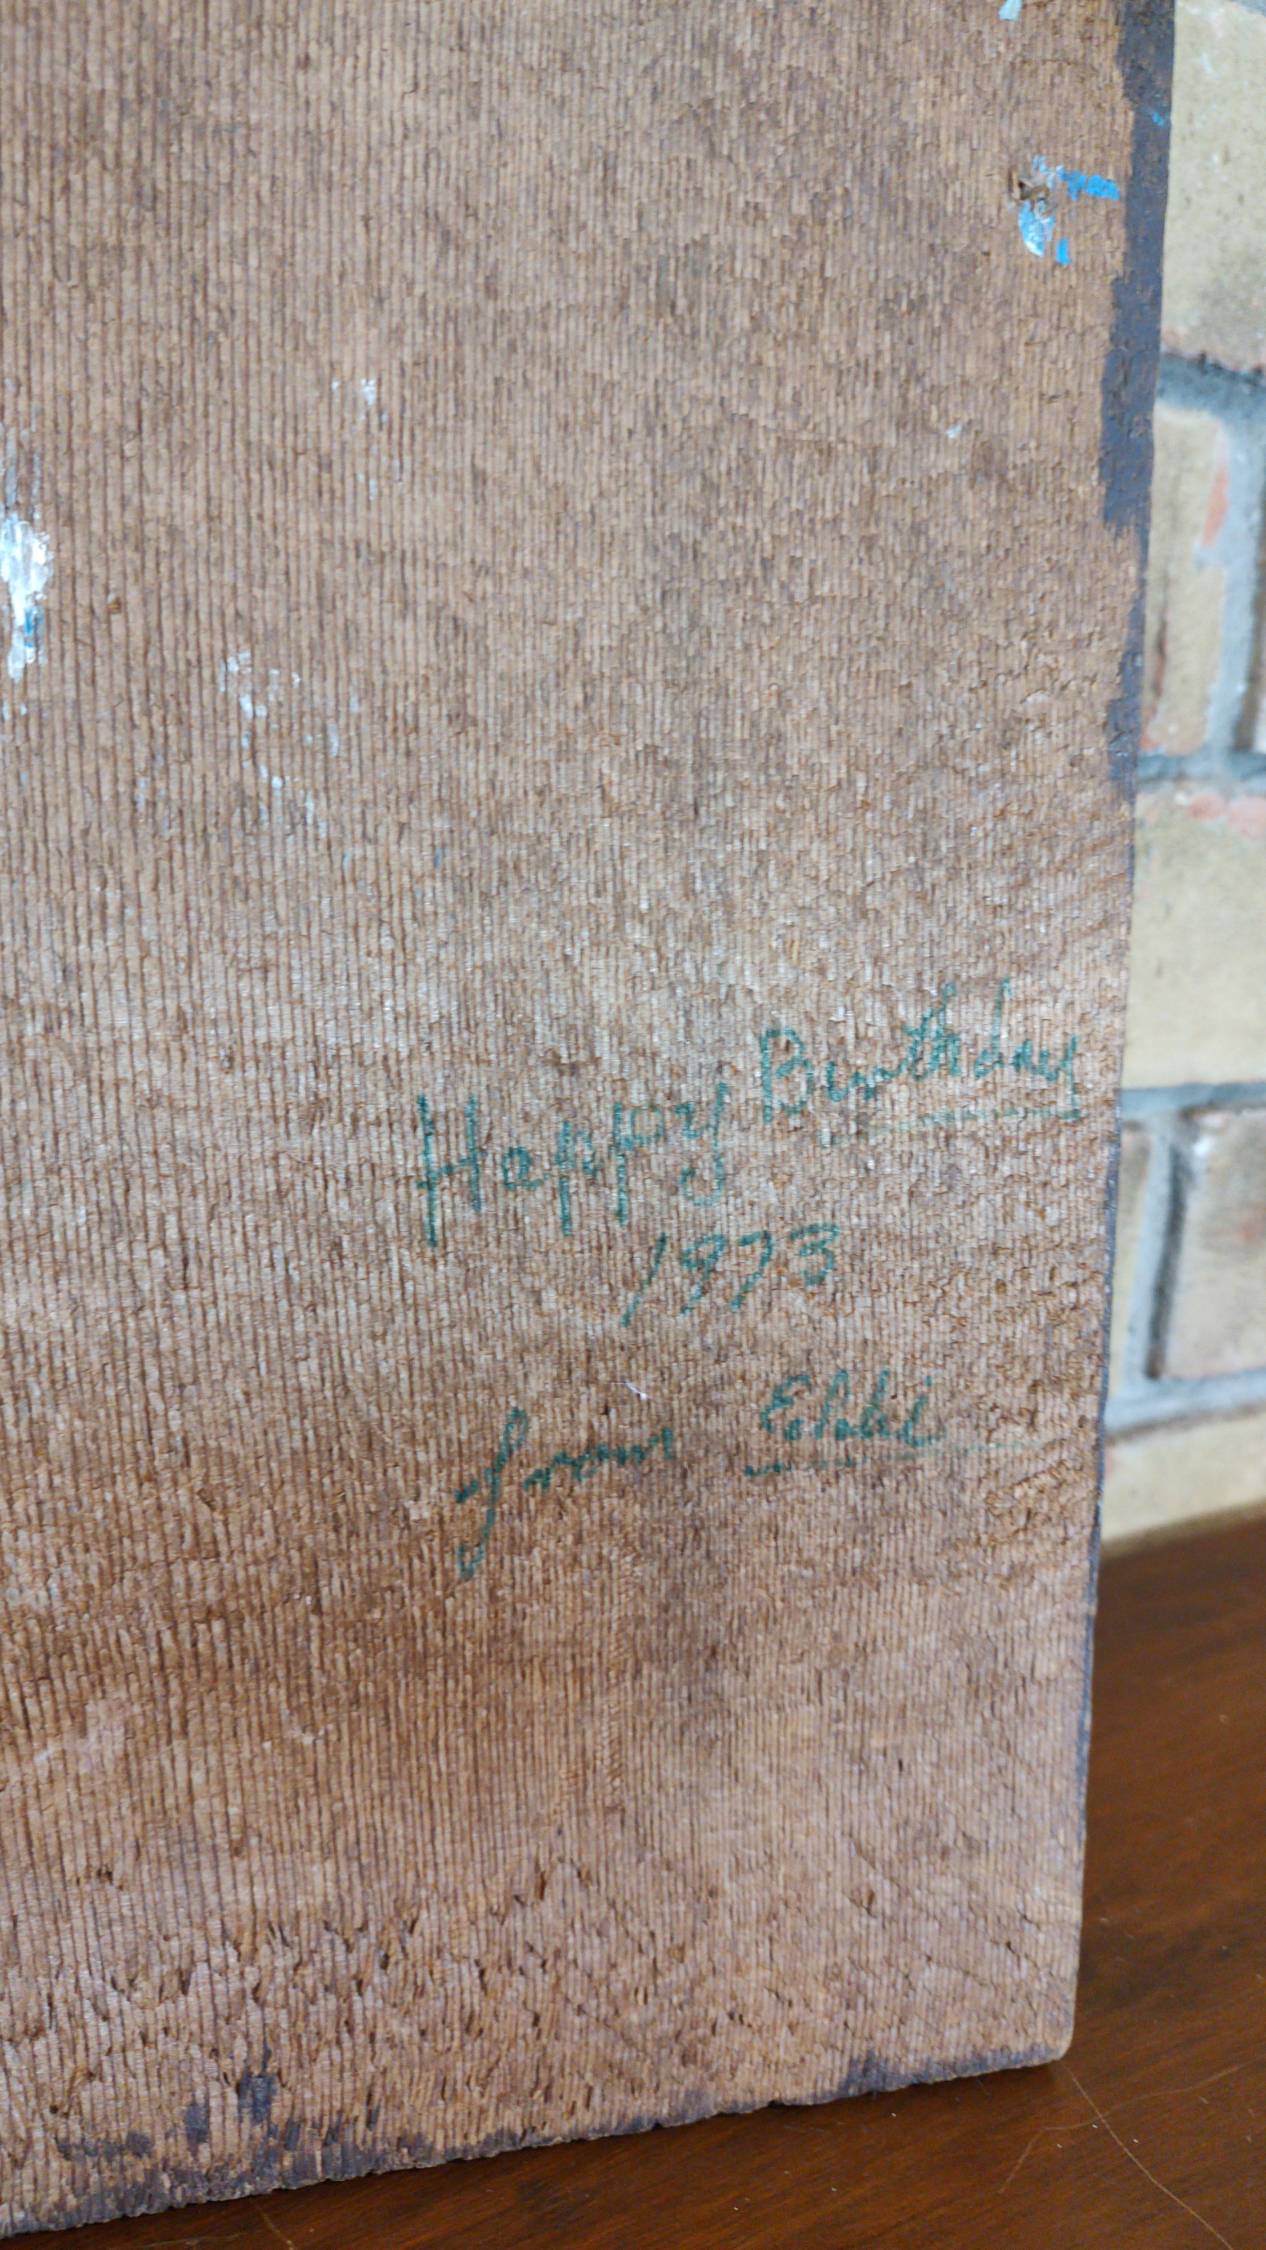 Happy Birthday
1973
from